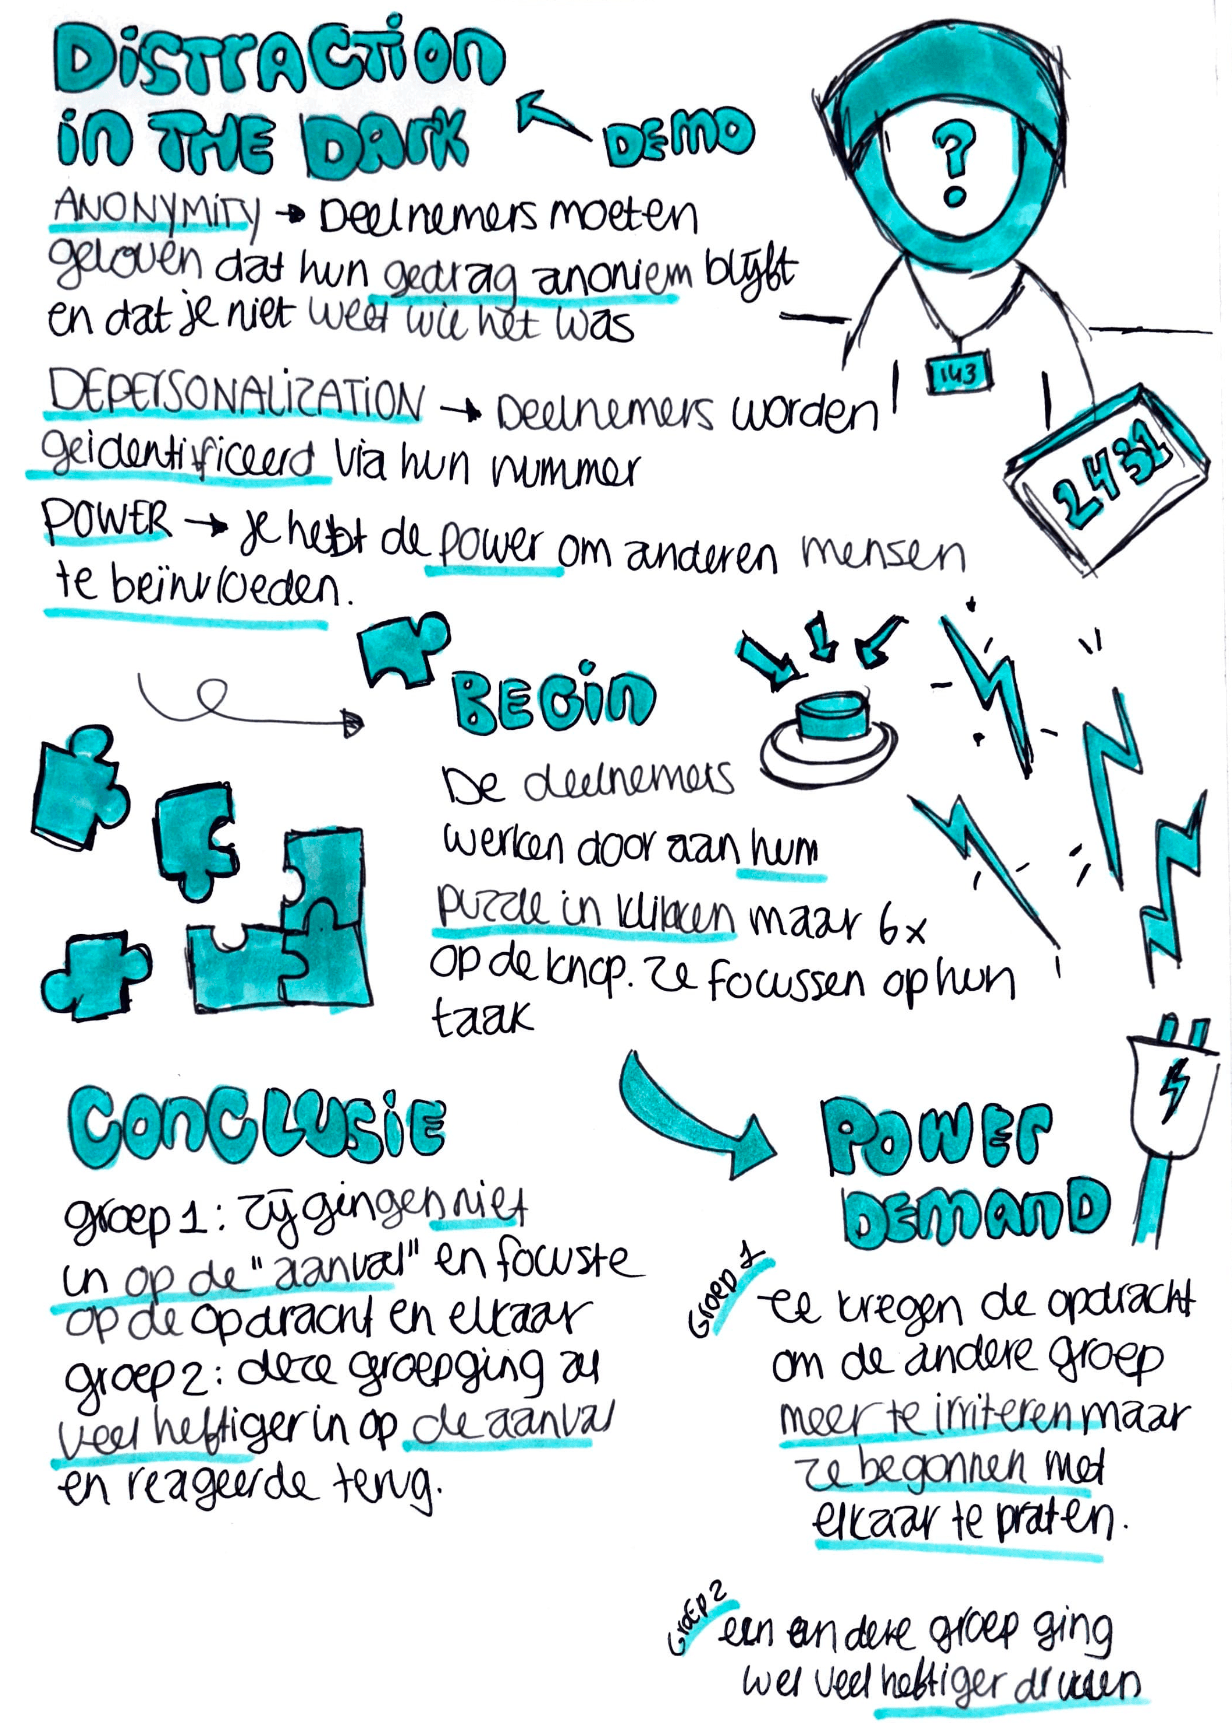 DISTRACTION
IN THE DARK
DEMO
?
ANONYMITY → Deelnemers moeten
geloven dat hun gedrag anoniem blijft
en dat je niet weet wie het was
143
DEPERSONALIZATION → Deelnemers worden
geidentificeerd via hun nummer
2431
POWER → je hebt de power om anderen mensen
te beïnvloeden.
BEGIN
De deelnemers
werken door aan hum
puzzle in klikken maar 6x
op de knop. Ze focussen op hun
taak
CONCLUSIE
groep 1: zij gingen niet
in op de "aanval" en focuste
op de opdracht en elkaar
groep 2: deze groep ging al
veel heftiger in op de aanval
en reageerde terug.
POWER
DEMAND
Groep 1
Ze kregen de opdracht
om de andere groep
meer te irriteren maar
ze begonnen met
elkaar te praten.
Groep 2
een andere groep ging
wel veel heftiger drukken